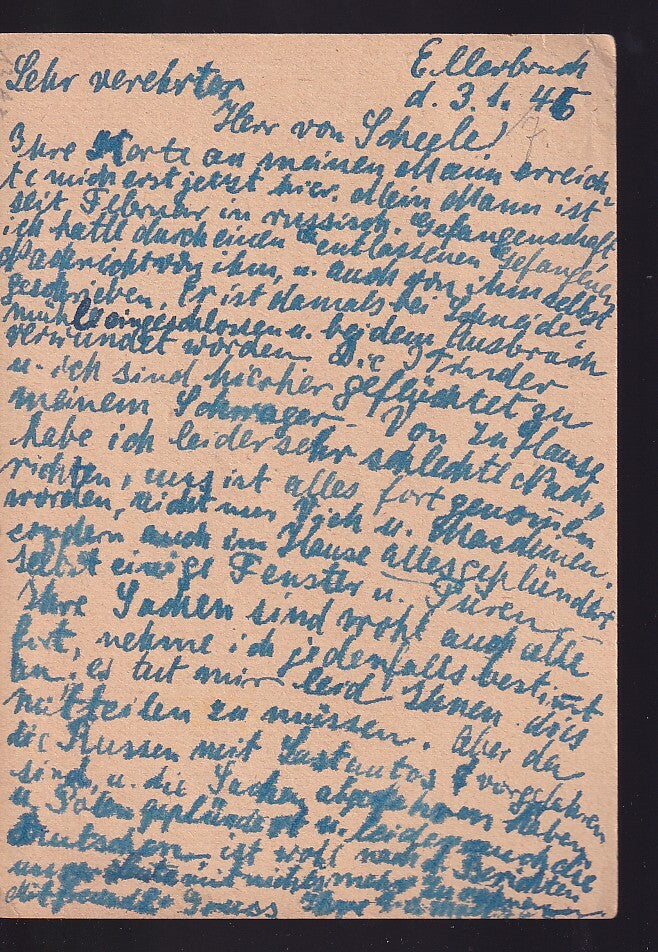 Ellerbruch
d. 3.1.46
Sehr verehrter
Herr von Scheele
Ihre Karte an meinen Mann erreich-
te mich erst jetzt hier. Mein Mann ist
seit Februar in russisch. Gefangenschaft
ich hatte durch einen entlassenen Gefangenen
Nachricht von ihm, u. auch von ihm selbst
geschrieben. Er ist damals bei Schneide-
mühle eingeschlossen u. bei dem Ausbruch
verwundet worden. Die Kinder
u. ich sind hierher geflüchtet zu
meinem Schwager. Von zu Hause
habe ich leider sehr schlechte Nach-
richten, uns ist alles fort genom̄en
worden, nicht nur Vieh u. Maschinen.
sondern auch im Hause alles geplündert
selbst einige Fenster u. Türen.
Ihre Sachen sind wohl auch alle
fort, nehme ich jedenfalls bestim̄t
an. es tut mir leid Ihnen dies
mitteilen zu müssen. Aber da
die Russen mit Lastautos vorgefahren
sind, u. die Sachen abgefahren haben.
u. Polen geplündert u. leider auch die
Deutschen, ist wohl nach d. Berichten
mit nichts mehr zu
Mit freundl. Gruss